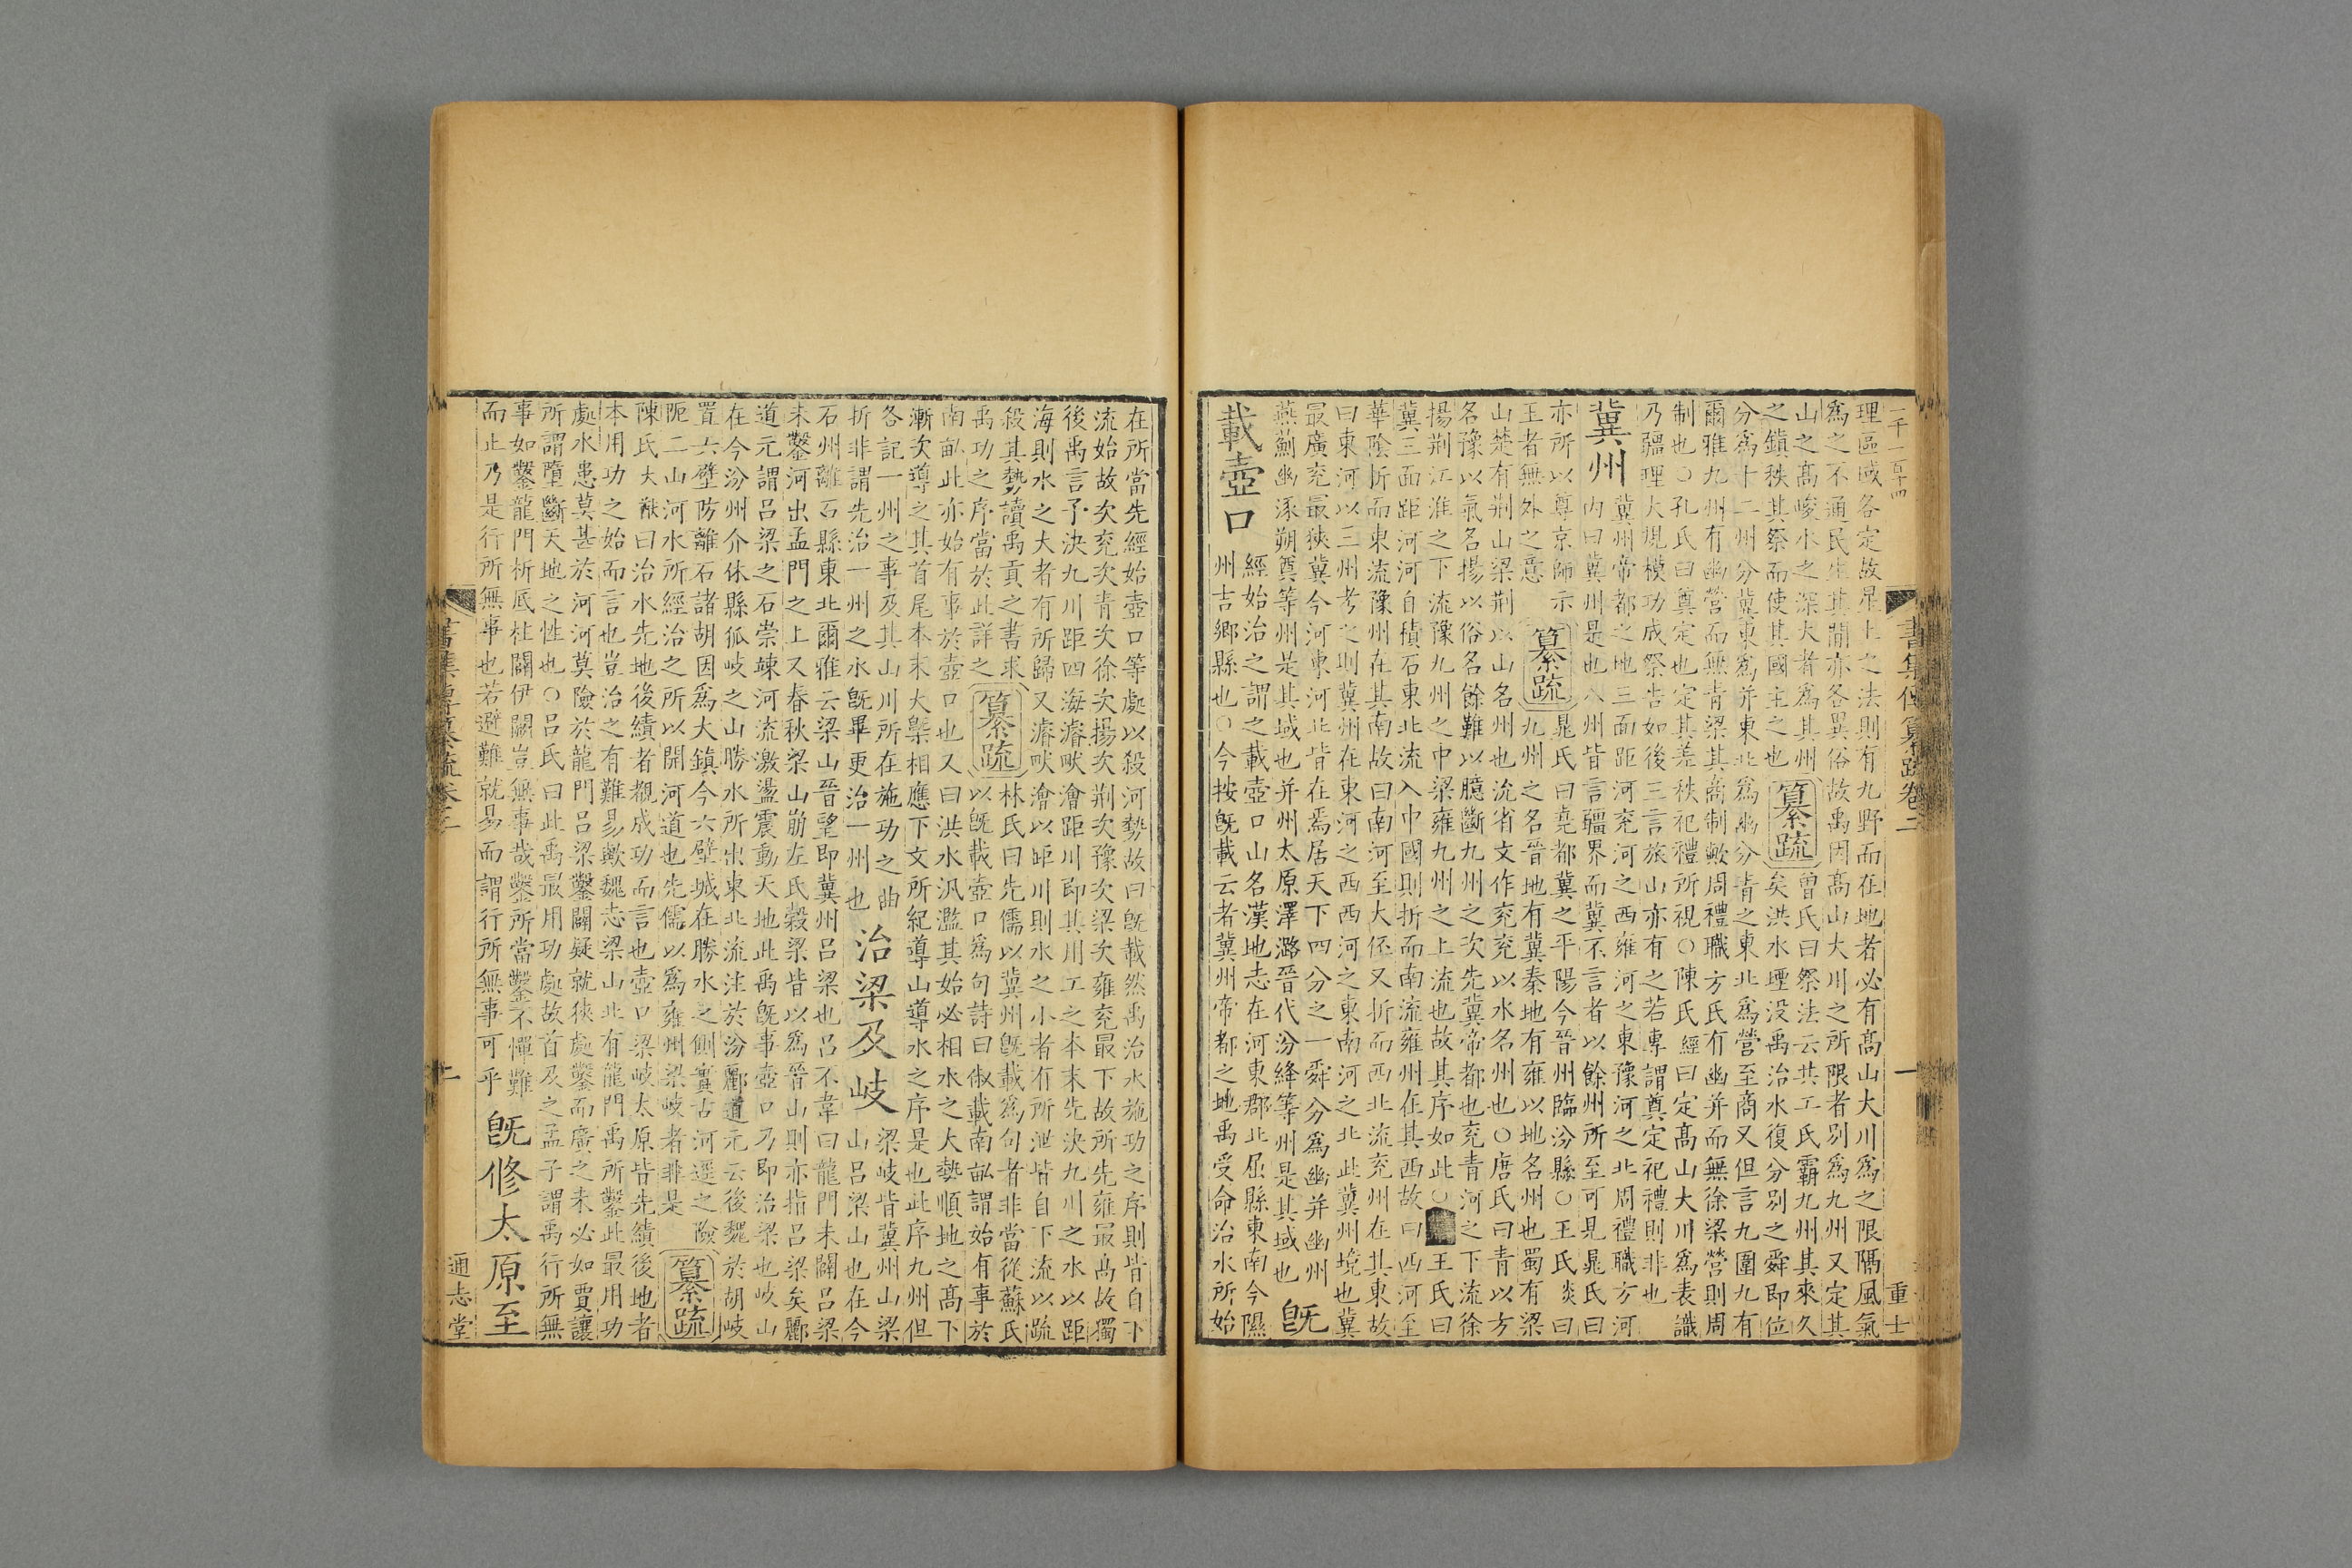 一千一百十四
理區域各定故星土之法則有九野而在地者必有高山大川爲之限隔風氣
爲之不通民生其間亦各異俗故禹因高山大川之所限者別爲九州又定其
山之高峻水之深大者爲其州
之鎮秩其祭而使其國主之也
纂疏
曾氏曰祭法云共工氏霸九州其來久
矣洪水堙没禹治水復分別之舜即位
分爲十二州分冀東爲并東北爲幽分青之東北爲營至商又但言九圍九有
爾雅九州有幽營而無青梁其商制歟周禮職方氏有幽并而無徐梁營則周
制也○孔氏曰奠定也定其差秩祀禮所視○陳氏經曰定高山大川爲表識
乃疆理大規模功成祭告如後三言旅山亦有之若專謂奠定祀禮則非也
冀州
冀州帝都之地三面距河兖河之西雍河之東豫河之北周禮職方河
內曰冀州是也八州皆言疆界而冀不言者以餘州所至可見晁氏曰
亦所以尊京師示
王者無外之意
纂疏
晁氏曰堯都冀之平陽今晉州臨汾縣○王氏炎曰
九州之名晉地有冀秦地有雍以地名州也蜀有梁
山楚有荆山梁荆以山名州也沇省文作兖兖以水名州也○唐氏曰青以方
名豫以氣名揚以俗名餘難以臆斷九州之次先冀帝都也兖青河之下流徐
揚荆江淮之下流豫九州之中梁雍九州之上流也故其序如此○王氏曰
冀三面距河河自積石東北流入中國則折而南流雍州在其西故曰西河至
華陰折而東流豫州在其南故曰南河至大伾又折而西北流兖州在其東故
曰東河以三州考之則冀州在東河之西西河之東南河之北此冀州境也冀
最廣兖最狹冀今河東河北皆在焉居天下四分之一舜分爲幽并幽州
燕薊幽涿朔奠等州是其域也并州太原澤潞晉代汾絳等州是其域也
既
載壺口
經始治之謂之載壺口山名漢地志在河東郡北屈縣東南今隰
州吉鄉縣也○今按既載云者冀州帝都之地禹受命治水所始
書集傳纂疏卷二
一
重士
在所當先經始壺口等處以殺河勢故曰既載然禹治水施功之序則皆自下
流始故次兖次青次徐次揚次荆次豫次梁次雍兖最下故所先雍最高故獨
後禹言予決九川距四海濬畎澮距川即其用工之本末先決九川之水以距
海則水之大者有所歸又濬畎澮以距川則水之小者有所泄皆自下流以疏
殺其勢讀禹貢之書求
禹功之序當於此詳之
纂疏
林氏曰先儒以冀州既載爲句者非當從蘇氏
以既載壺口爲句詩曰俶載南畝謂始有事於
南畝此亦始有事於壺口也又曰洪水汎濫其始必相水之大勢順地之高下
漸次導之其首尾本末大槩相應下文所紀導山導水之序是也此序九州但
各記一州之事及其山川所在施功之曲
折非謂先治一州之水既畢更治一州也
治梁及岐
梁岐皆冀州山梁
山吕梁山也在今
石州離石縣東北爾雅云梁山晉望即冀州吕梁也吕不韋曰龍門未闢吕梁
未鑿河出孟門之上又春秋梁山崩左氏穀梁皆以爲晉山則亦指吕梁矣酈
道元謂吕梁之石崇竦河流激盪震動天地此禹既事壺口乃即治梁也岐山
在今汾州介休縣狐岐之山勝水所出東北流注於汾酈道元云後魏於胡岐
置六壁防離石諸胡因爲大鎮今六壁城在勝水之側實古河逕之險
阨二山河水所經治之所以開河道也先儒以爲雍州梁岐者非是
纂疏
陳氏大猷曰治水先地後績者觀成功而言也壺口梁岐太原皆先績後地者
本用功之始而言也豈治之有難易歟魏志梁山北有龍門禹所鑿此最用功
處水患莫甚於河河莫險於龍門吕梁鑿闢疑就狹處鑿而廣之未必如賈讓
所謂墮斷天地之性也○吕氏曰此禹最用功處故首及之孟子謂禹行所無
事如鑿龍門析厎柱闢伊闕豈無事哉鑿所當鑿不憚難
而止乃是行所無事也若避難就易而謂行所無事可乎
既修太原至
書集傳纂疏卷二
二
通志堂